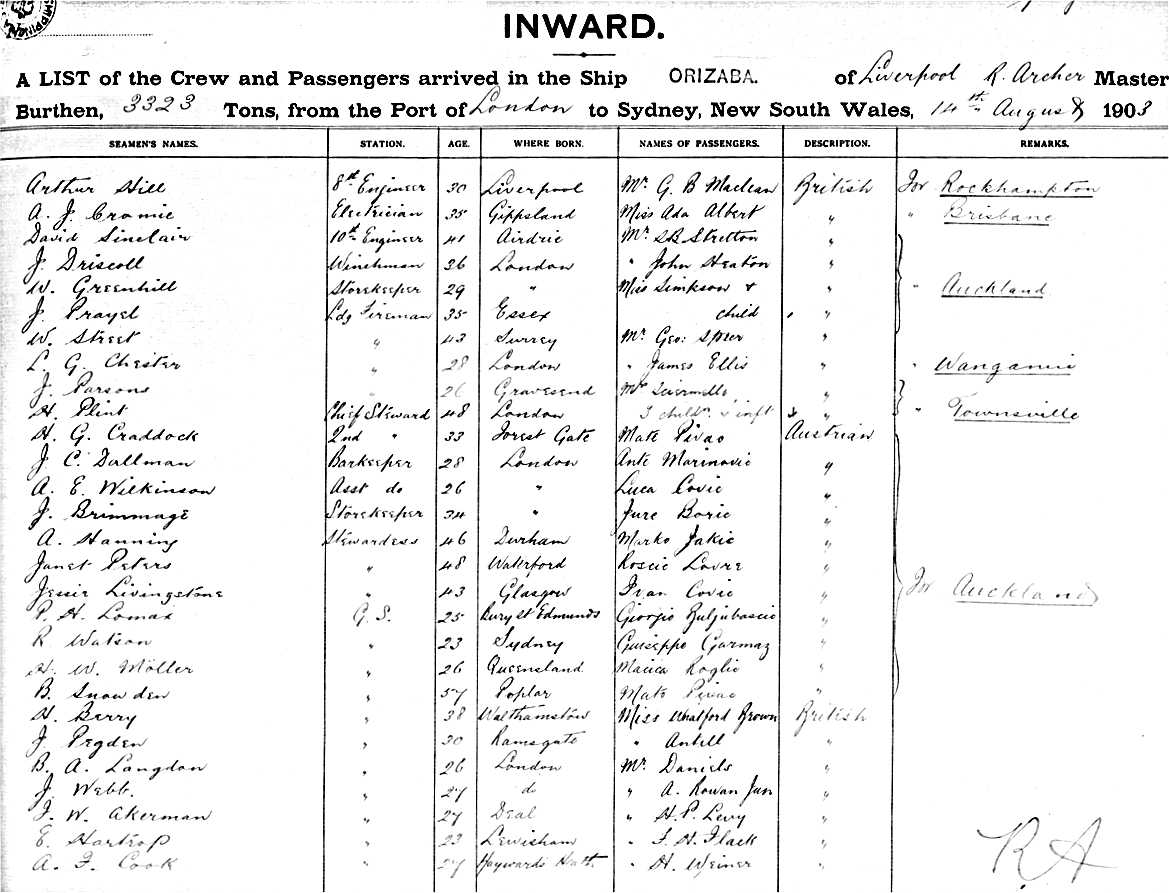 INWARD.
A LIST of the Crew and Passengers arrived in the Ship ORIZABA. of Liverpool R. Archer Master
Burthen, 3323 Tons, from the Port of London to Sydney, New South Wales, 14th August 1903
SEAMEN'S NAMES. STATION. AGE. WHERE BORN. NAMES OF PASSENGERS. DESCRIPTION. REMARKS.
Arthur Hill 8th Engineer 30 Liverpool Mr. G B Maclean British For Rockhampton
A. J. Cromie Electrician 35 Gippsland Miss Ada Albert " " Brisbane
David Sinclair 10th Engineer 41 Airdrie Mr. S B Stretton "
J. Driscoll Winchman 36 London " John Heaton "
W. Greenhill Storekeeper 29 " Miss Simpson & " Auckland
J. Prayel Ldg Fireman 35 Essex child "
W. Street " 43 Surrey Mr. Geo: Speer "
L. G. Chester " 28 London " James Ellis " " Wanganui
J. Parsons " 26 Gravesend "
H. Plint Chief Steward 48 London 3 childn. & inft " " Townsville
H. G. Craddock 2nd " 33 Forest Gate Mate Pivac Austrian
J. C. Dallman Barkeeper 28 London Ante Marinovic "
A. E. Wilkinson Asst do 26 " Luca Covic "
J. Brimmage Storekeeper 34 " Jure Boric "
A. Hanning Stewardess 46 Durham Marko Jakic "
Janet Peters " 48 Waterford Roscic Lovre "
Jessie Livingstone " 43 Glasgow Ivan Covic " For Auckland
P. H. Lomax G. S. 25 Bury St Edmunds Giorgio "
R Watson " 23 Sydney Guiseppo "
H. W. Möller " 26 Queensland Roglic "
B. Snowden " 57 Poplar Mate Pivac "
H. Berry " 38 Walthamstow Miss Whatford Brown British
J. Pegden " 30 Ramsgate " Antill "
B. A. Langdon " 26 London Mr. Daniels "
J. Webb. " 27 do " A. Rowan Jun "
J. W. Akerman " 27 Deal " H. P. Levy "
E. Hartrop " 23 Lewisham " F. H. Flack "
A. F. Cook " 27 Haywards Hath. " H. Weiner "
R A